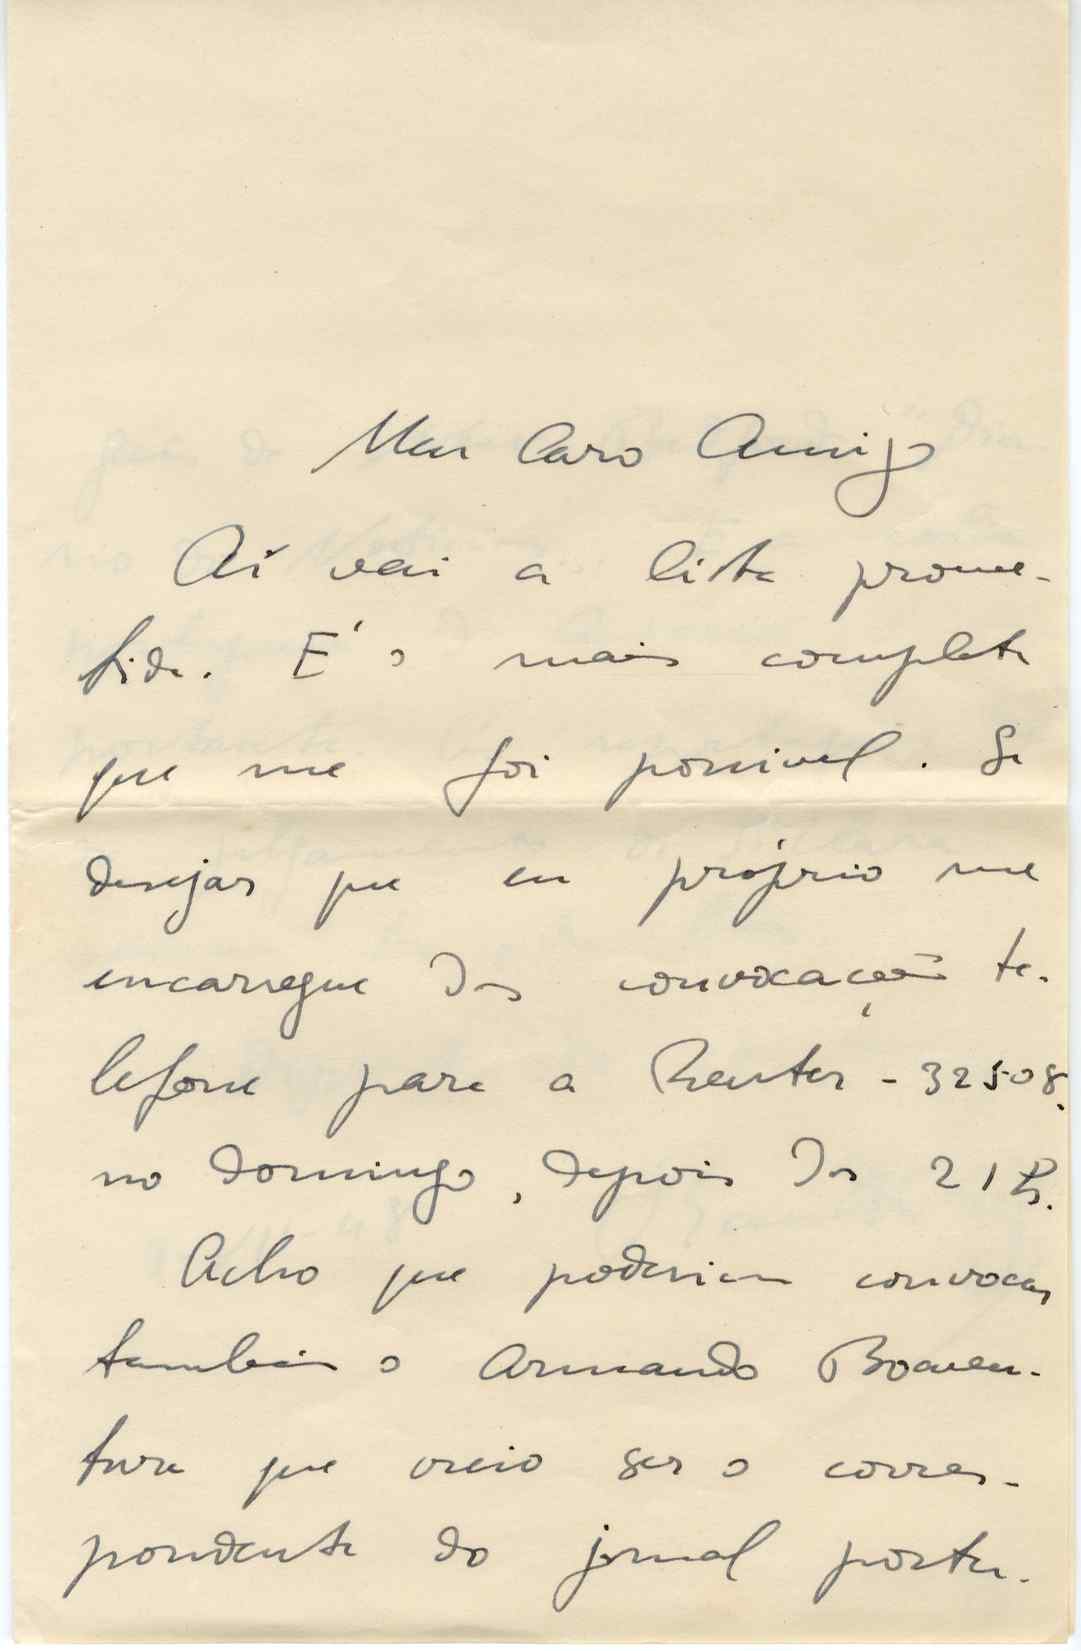 Meu Caro Amigo
Aí vai a lista prome-
tida. E' o mais completa
que me foi possivel. Se
desejar que eu próprio me
encarregue das convocações te-
lefone para a Reuter - 32508.
no domingo, depois das 21 h.
Acho que poderiam convocar
tambem o Armando Boaven-
tura que creio ser o corres-
pondente do jornal portu-